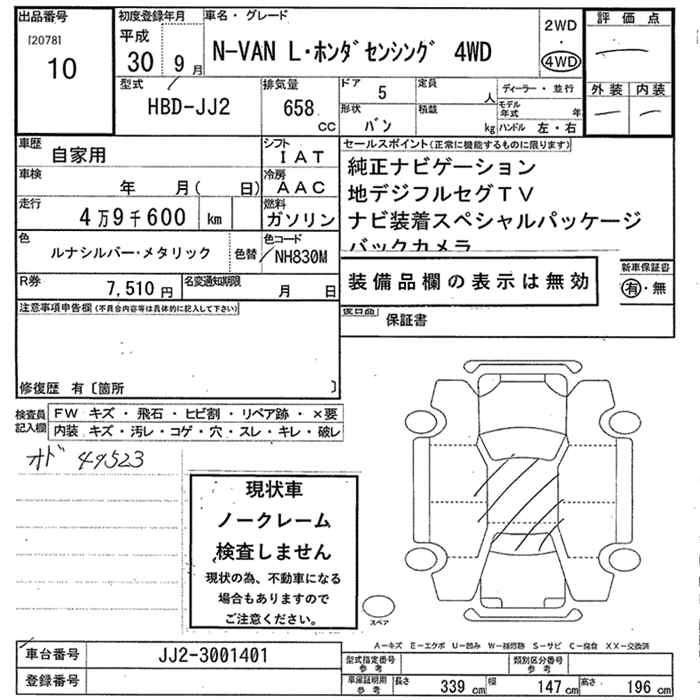 出品番号
[2078]
10
初度登録年月
平成
30 9 月
車名・グレード
N-VAN L・ホンダセンシング 4WD
2WD
・
4WD
評価点
外装 内装
型式
HBD-JJ2
排気量
658 CC
ドア 5
定員 人
形状 バン
積載 kg
ディーラー・並行
モデル年式 年
ハンドル 左・右
車歴 自家用
シフト IAT
車検 年 月( 日)
冷房 AAC
走行 4万9千600 km
燃料 ガソリン
色 ルナシルバー・メタリック
色替
色コード NH830M
R券 7,510円
名変通知期限 月 日
セールスポイント(正常に機能するものに限ります)
純正ナビゲーション
地デジフルセグTV
ナビ装着スペシャルパッケージ
バックカメラ
装備品欄の表示は無効
新車保証書
有・無
後日品
保証書
注意事項申告欄(不具合内容等は具体的に記入して下さい)
修復歴 有〔箇所 〕
検査員記入欄
FW キズ・飛石・ヒビ割・リペア跡・×要
内装 キズ・汚レ・コゲ・穴・スレ・キレ・破レ
オド 49523
現状車
ノークレーム
検査しません
現状の為、不動車になる
場合もありますので
ご注意ください。
スペア
A-キズ E-エクボ U-凹み W-補修跡 S-サビ C-腐食 XX-交換済
車台番号 JJ2-3001401
登録番号
型式指定番号 参考
類別区分番号 参考
車庫証明用 参考
長さ 339 cm
幅 147 cm
高さ 196 cm